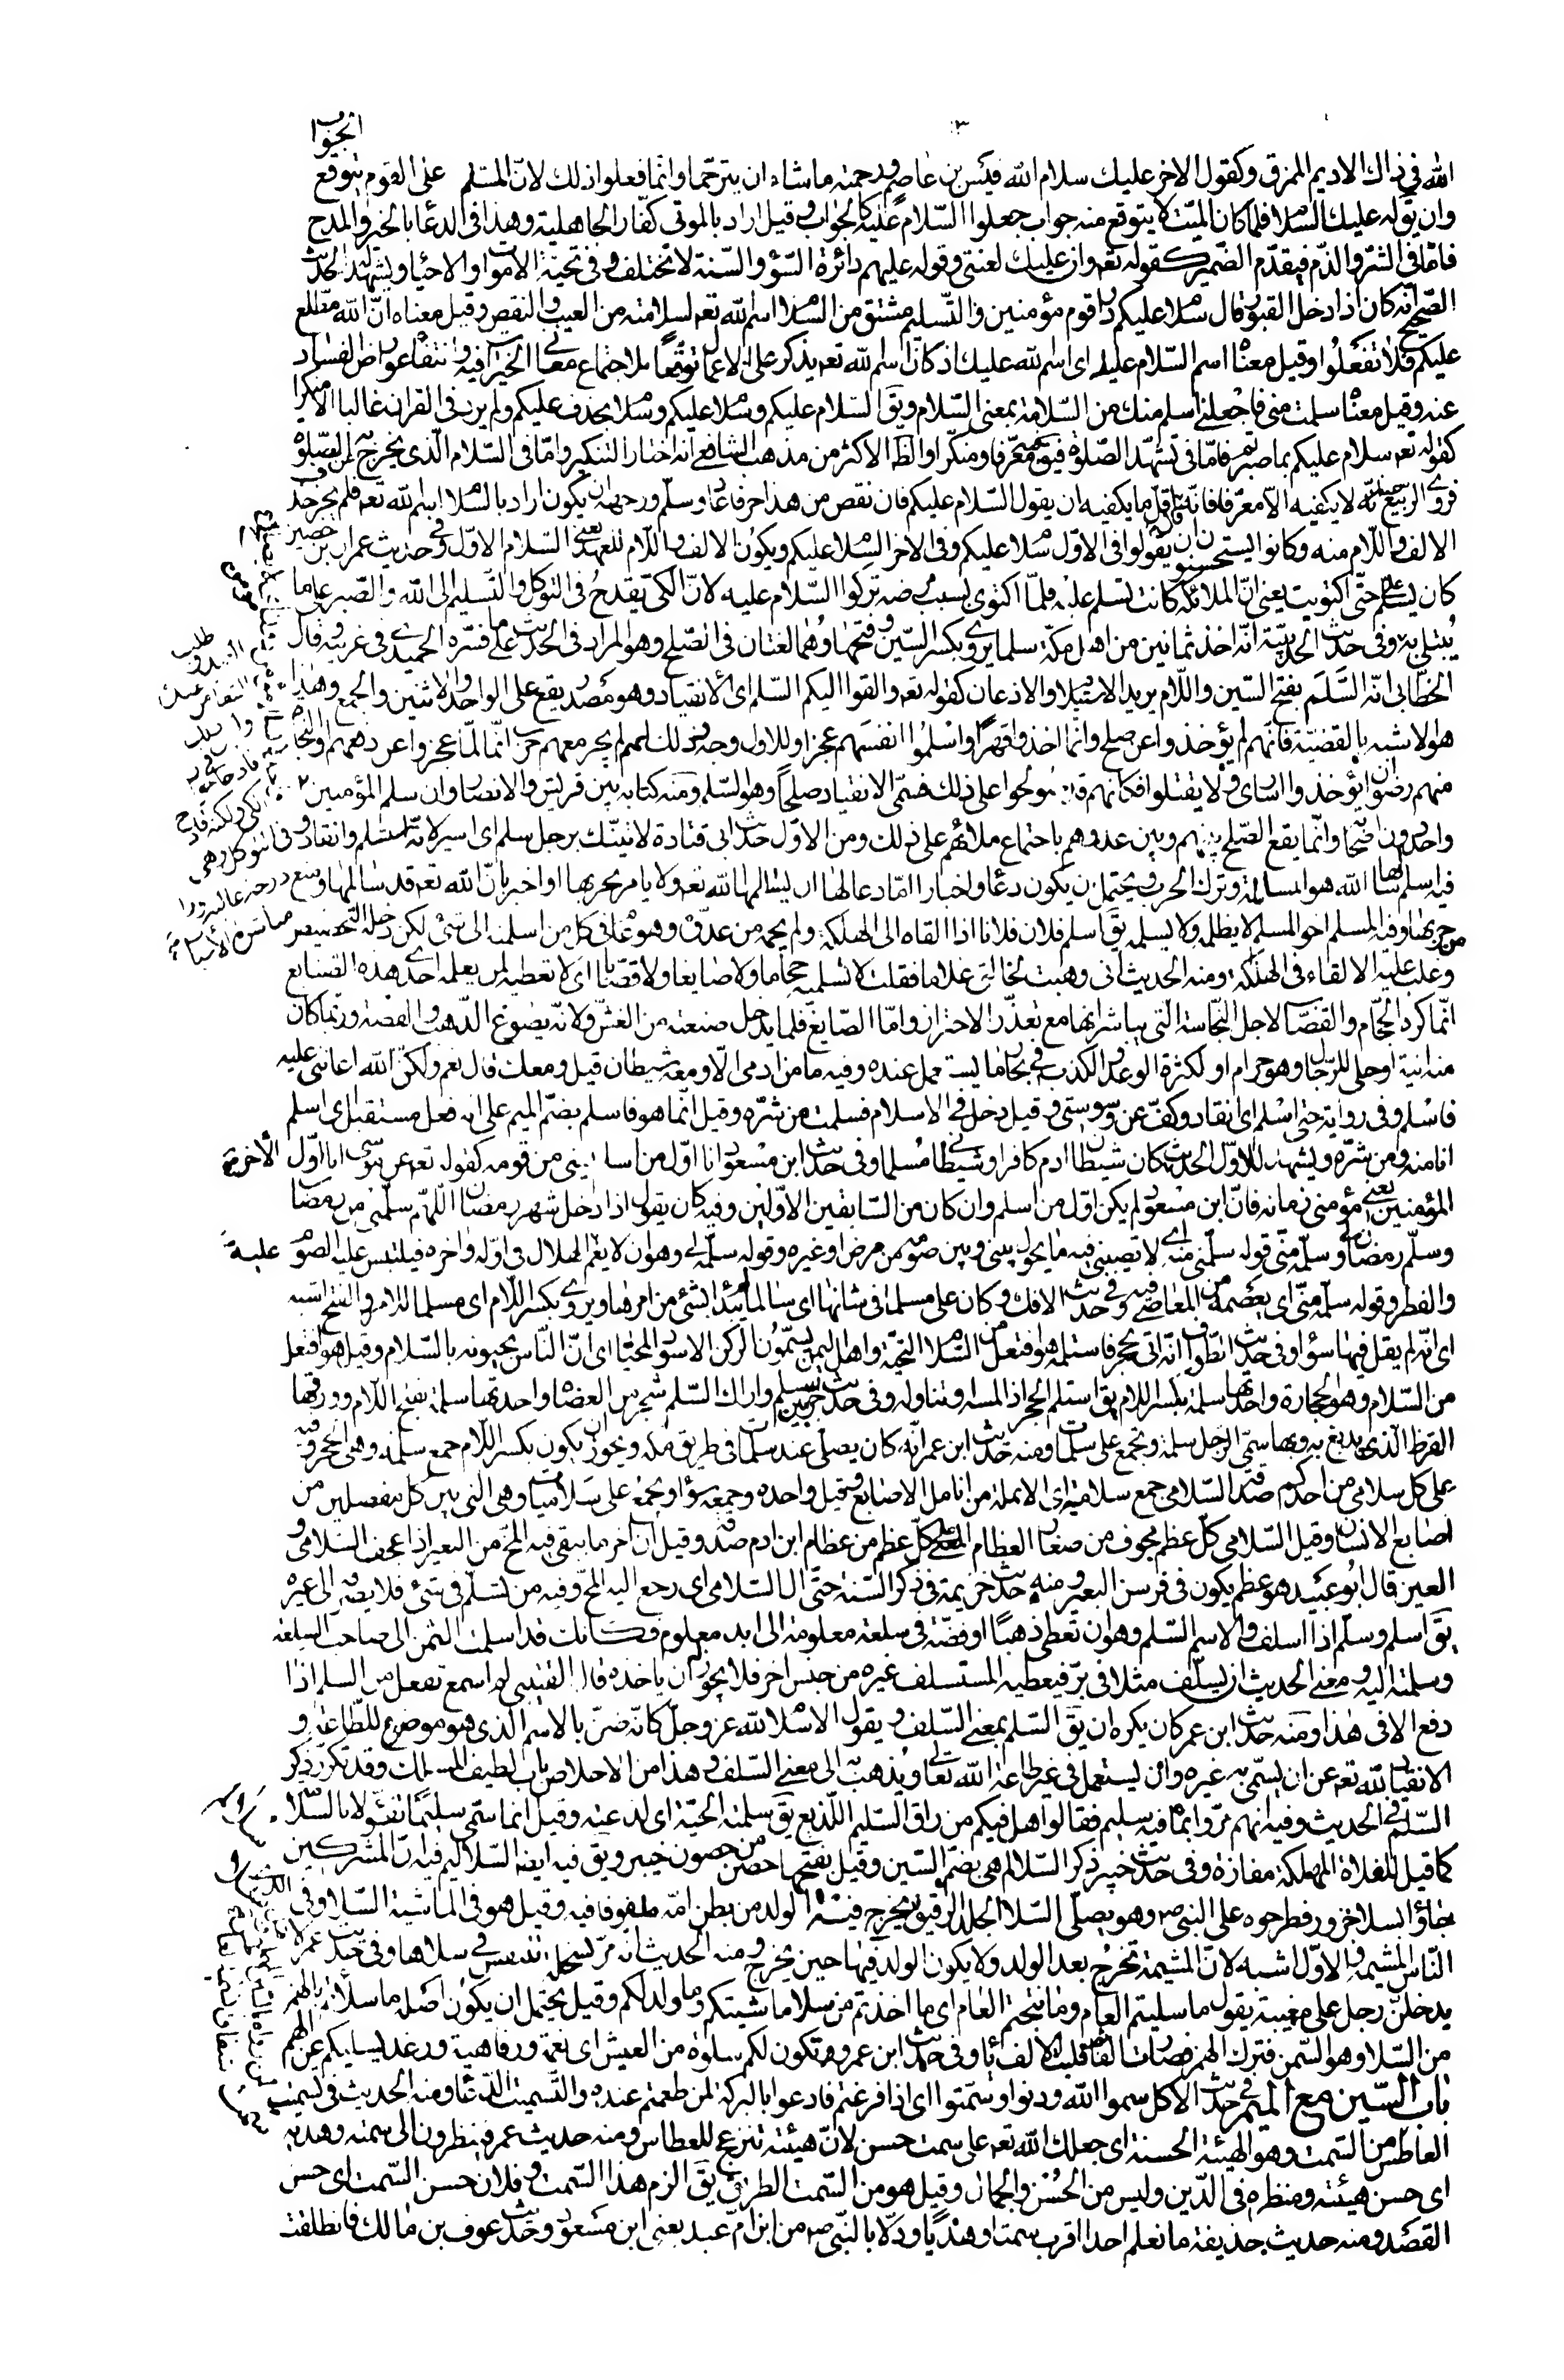 الجواب
٣
الله في ذاك الاديم الممزق وكقول الاخر عليك سلام الله قيس بن عاصم ورحمته ما شاء ان يترحما وانما فعلوا ذلك لان المسلم على القوم يتوقع
وان يقوله عليك السلام فلما كان الميت لا يتوقع منه جواب جعلوا السلام عليه كالجواب وقيل اراد بالموتى كفار الجاهلية وهذا في الدعا بالخير والمدح
فاما في الشر والذم فيقدم الضمير كقوله تعه وان عليك لعنتي وقوله عليهم دائرة السوؤ والسنة لا تختلف في تحية الاموات والاحيا ويشهد له الحديث
الصحيح انه كان اذا دخل القبور قال سلام عليكم دار قوم مؤمنين والتسليم مشتق من السلام اسم الله تعه لسلامته من العيب والنقص وقيل معناه ان الله مطلع
عليكم فلا تغفلوا وقيل معناه اسم السلام عليك اى اسم الله عليك اذ كان اسم الله تعه يذكر على الاعمال توقعا لاجتماع معاني الخيرات فيه وانتفا عوارض الفساد
عنه وقيل معناه سلمت مني فاجعلني اسلم منك من السلامة بمعنى السلام ويق السلام عليكم وسلام عليكم وسلام بحذف عليكم ولم يرد في القران غالبا الا منكرا
كقوله تعه سلام عليكم بما صبرتم فاما في تشهد الصلوة فيق فيه معرفا ومنكرا والظ الاكثر من مذهب الشافعي انه اختار التنكير واما في السلام الذي يخرج به من الصلوة
فروى الربيع عنه انه لا يكفيه الا معرفا فانه قال اقل ما يكفيه ان يقول السلام عليكم فان نقص من هذا حرفا عاد وسلم ووجهه ان يكون اراد بالسلام اسم الله تعه فلم يجز حذف
الالف واللام منه وكانوا يستحسنون ان يقولوا في الاول سلام عليكم وفي الاخر السلام عليكم ويكون الالف واللام للعهد يعني السلام الاول وفي حديث عمران بن حصين
كان يسلم علي حتى اكتويت يعني ان الملائكة كانت تسلم عليه فلما اكتوى بسبب مرضه تركوا السلام عليه لان الكي يقدح في التوكل والتسليم الى الله والصبر على ما
يبتلى به وفي حديث الحديبية انه اخذ ثمانين من اهل مكة سلما يروى بكسر السين وفتحها وهما لغتان في الصلح وهو المراد في الحديث على ما فسره الحميدى في غريبه وقال
الخطابي انه السلم بفتح السين واللام يريد الاستسلام والاذعان كقوله تعه والقوا اليكم السلم اى الانقياد وهو مصدر يقع على الواحد والاثنين والجمع وهذا
هو الاشبه بالقضية فانهم لم يؤخذوا عن صلح وانما اخذوا قهرا واسلموا انفسهم عجزا وللاول وجه وذلك انهم لم يجر معهم حرب انما لما عجزوا عن دفعهم او النجاة
منهم رضوا ان يؤخذوا اسارى ولا يقتلوا فكانهم قد صولحوا على ذلك فسمى الانقياد صلحا وهو السلم ومنه كتابه بين قريش والانصار وان سلم المؤمنين
واحد ... وانما يقع الصلح بينهم وبين عدوهم باجتماع ملائهم على ذلك ومن الاول حديث ابي قتادة لاتينك برجل سلم اى اسير لانه استسلم وانقاد وفي
فيه اسلم سالمها الله هو من المسالمة وترك الحرب ويحتمل ان يكون دعا واخبارا اما دعا لها ان يسالمها الله تعه ولا يامر بحربها او اخبر بان الله تعه قد سالمها ومنع
من حربها وفيه المسلم اخو المسلم لا يظلمه ولا يسلمه يق اسلم فلان فلانا اذا القاه الى الهلكة ولم يحمه من عدوه وهو عام في كل من اسلمته الى شئ لكن دخله التخصيص
وغلب عليه الالقاء في الهلكة ومنه الحديث اني وهبت لخالتي غلاما فقلت لا تسلميه حجاما ولا صايغا ولا قصابا اى لا تعطيه لمن يعلمه احدى هذه الصنايع
انما كره الحجام والقصاب لاجل النجاسة التي يباشرانها مع تعذر الاحتراز واما الصايغ فلما يدخل صنعته من الغش ولانه يصوغ الذهب والفضة وربما كان
منه انية او حلي للرجال وهو حرام او لكثرة الوعد والكذب في نجاز ما يستعمل عنده وفيه ما من ادمى الا ومعه شيطان قيل ومعك قال نعم ولكن الله اعانني عليه
فاسلم وفي رواية حتى اسلم اى انقاد وكف عن وسوستي وقيل دخل في الاسلام فسلمت من شره وقيل انما هو فاسلم بضم الميم على انه فعل مستقبل اى اسلم
انا منه ومن شره ويشهد للاول الحديث الاخر كان شيطان ادم كافرا وشيطاني مسلما وفي حديث ابن مسعود انا اول من اسلم يعني من قومه كقوله تعه عن موسى انا اول
المؤمنين يعني مؤمني زمانه فان ابن مسعود لم يكن اول من اسلم وان كان من السابقين الاولين وفيه كان يقول اذا دخل شهر رمضان اللهم سلمني من رمضان
وسلم رمضان لي وسلمه مني قوله سلمني منه اى لا تصيبني فيه ما يحول بيني وبين صومه من مرض او غيره وقوله سلمه لي وهو ان لا يغم الهلال في اوله واخره فيلتبس عليه الصوم
والفطر وقوله سلمه مني اى يعصمه من المعاصي فيه وفي حديث الافك وكان علي مسلما في شانها اى سالما لم يبد بشئ من امرها ويروى بكسر اللام اى مسلما للامر والفتح اشبه
اى انه لم يقل فيها سوؤا وفي حديث الطواف انه اتى الحجر فاستلمه هو افتعل من السلام التحية واهل اليمن يسمون الركن الاسود المحيا اى ان الناس يحيونه بالسلام وقيل هو افتعل
من السلام وهو الحجارة واحدتها سلمة بكسر اللام يق استلم الحجر اذا لمسه وتناوله وفي حديث جرير بين سلم واراك السلم شجر من العضاه واحدتها سلمة بفتح اللام وورقها
القرظ الذى يدبغ به وبها سمى الرجل سلمة وتجمع على سلمات ومنه حديث ابن عمر انه كان يصلي عند سلمات في طريق مكة ويجوز ان يكون بكسر اللام جمع سلمة وهي الحجر وفيه
على كل سلامى من احدكم صدقة السلامى جمع سلامية وهى الانملة من انامل الاصابع وقيل واحده وجمعه سوؤا ويجمع على سلاميات وهى التي بين كل مفصلين من
اصابع الانسان وقيل السلامى كل عظم مجوف من صغار العظام المعنى على كل عظم من عظام ابن ادم صدقة وقيل ان اخر ما يبقى فيه المخ من البعير اذا عجف السلامى و
العين قال ابو عبيد هو عظم يكون في فرسن البعير ومنه حديث خزيمة في ذكر السنة حتى ال السلامى اى رجع اليه المخ وفيه من تسلم في شئ فلا يصرفه الى غيره
يق اسلم وسلم اذا اسلف والاسم السلم وهو ان تعطى ذهبا او فضة في سلعة معلومة الى ابد معلوم فكانك قد اسلمت الثمن الى صاحب السلعة
وسلمته اليه ومعنى الحديث ان يسلف مثلا في بر فيعطيه المستسلف غيره من جنس اخر فلا يجوز ان ياخذه قال القتيبي لم اسمع تفعل من السلم اذا
دفع الا في هذا ومنه حديث ابن عمر كان يكره ان يق السلم بمعنى السلف ويقول الاسلام لله عز وجل كانه ضن بالاسم الذى هو موضع للطاعة و
الانقياد لله تعه عن ان يسمى به غيره وان يستعمل في غير طاعة الله تعالى ويذهب به الى معنى السلف وهذا من الاخلاص باب لطيف المسلك وقد تكرر ذكر
السلم في الحديث وفيه انهم مروا بماء فيه سليم فقالوا هل فيكم من راق السليم اللذيغ يق سلمته الحية اى لدغته وقيل انما سمى سليما تفؤلا بالسلامة
كما قيل للفلاة المهلكة مفازة وفي حديث خيبر ذكر السلالم هى بضم السين وقيل بفتحها حصن من حصون خيبر ويق فيه ايضا السلاليم فيه ان المشركين
جاؤا بسلا جزور فطرحوه على النبي صه وهو يصلي السلا الجلد الرقيق يخرج فيه الولد من بطن امه ملفوفا فيه وقيل هو في الماشية السلا وفي
الناس المشيمة والاول اشبه لان المشيمة تخرج بعد الولد ولا يكون الولد فيها حين يخرج ومنه الحديث انه مر بسخلة تتنفس في سلاها وفي حديث عمر لا
يدخلن رجل على مغيبة يقول ما سليتم العام وما نتجتم العام اى ما اخذتم من سلا ماشيتكم وما ولد لكم وقيل يحتمل ان يكون اصله ما سلاتم بالهمز
من السلا وهو السمن فترك الهمز فصارت الفا فقلبت الالف يا وفي حديث ابن عمر وتكون لكم سلوة من العيش اى نعمة ورفاهية ورغد يسليكم عن الهم
باب السين مع الميم في حديث الاكل سموا الله ودنوا وسمتوا اى اذا فرغتم فادعوا بالبركة لمن طعمتم عنده والتسميت الدعا ومنه الحديث في تسميت
العاطس من السمت وهو الهيئة الحسنة اى جعلك الله تعه على سمت حسن لان هيئته تنزعج للعطاس ومنه حديث عمر فينظرون الى سمته وهديه
اى حسن هيئته ومنظره في الدين وليس من الحسن والجمال وقيل هو من السمت الطريق يق الزم هذا السمت وفلان حسن السمت اى حسن
القصد ومنه حديث حذيفة ما نعلم احدا اقرب سمتا وهديا ودلا بالنبي صه من ابن ام عبد يعني ابن مسعود وحديث عوف بن مالك فانطلقت